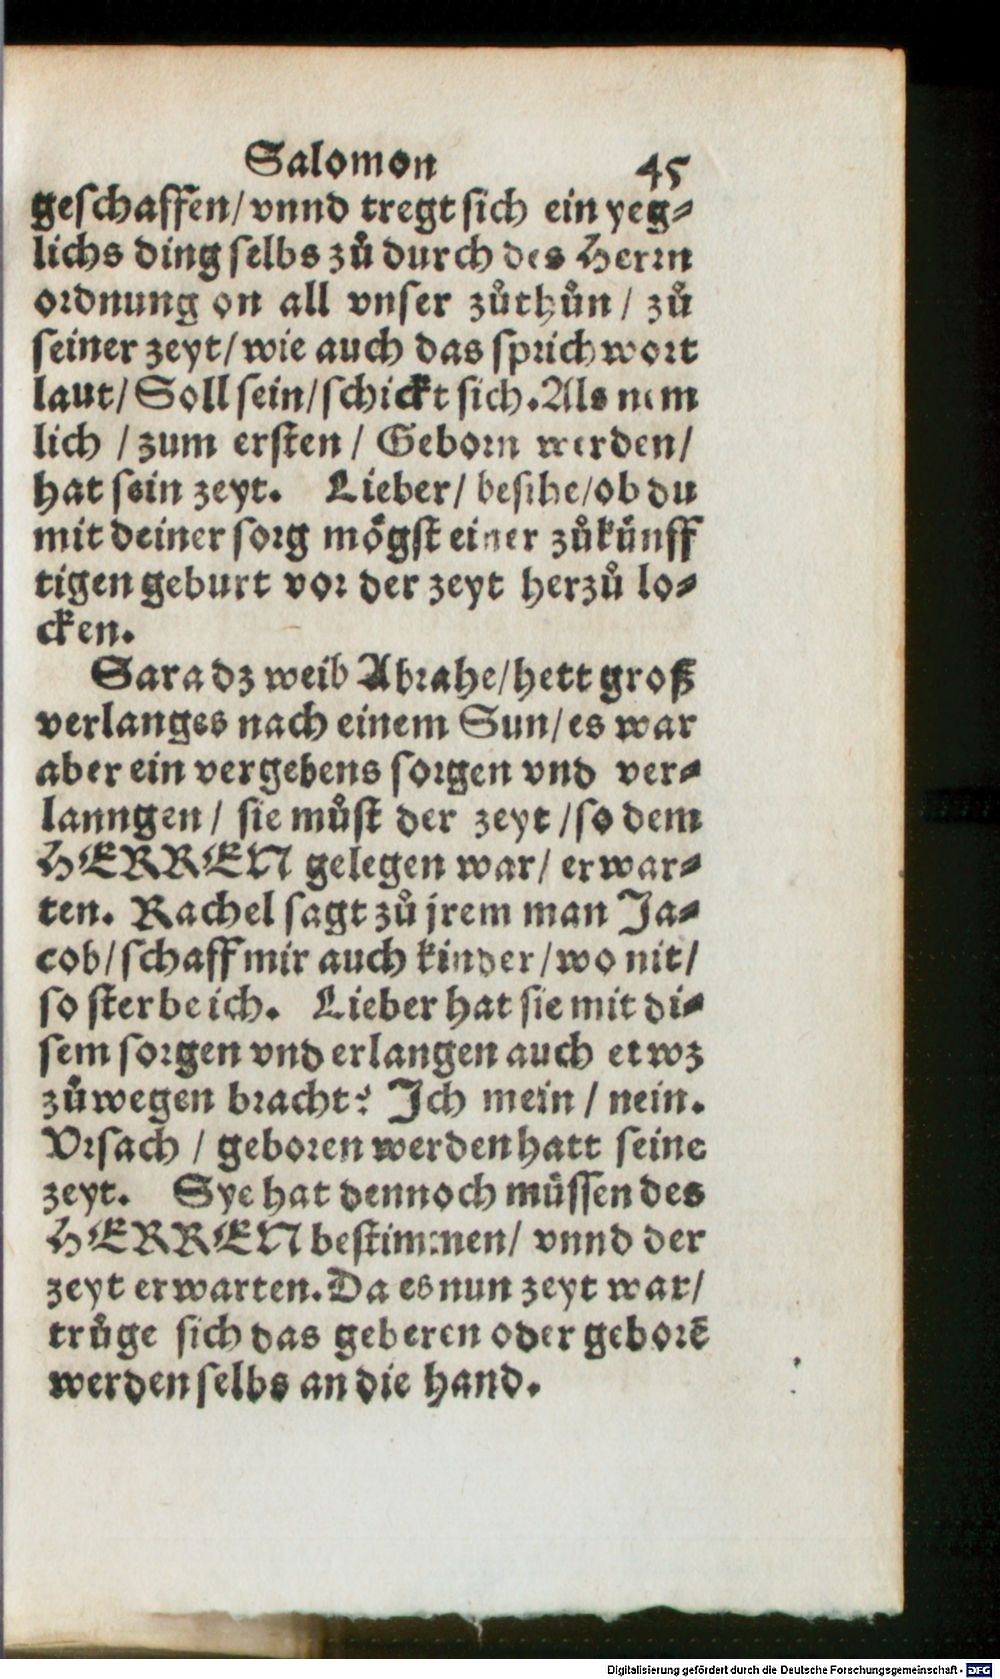 Salomon 45
geschaffen/ vnnd tregt sich ein yeg⸗
lichs ding selbs zů durch des Herrn
ordnung on all vnser zůthůn / zů
seiner zeyt/ wie auch das sprichwort
laut/ Soll sein/ schickt sich. Als nem
lich / zum ersten / Geborn werden/
hat sein zeyt. Lieber/ besihe/ ob du
mit deiner sorg mögst einer zůkünff
tigen geburt vor der zeyt herzů lo⸗
cken.
Sara dz weib Abrahe/ hett groß
verlanges nach einem Sun/ es war
aber ein vergebens sorgen vnd ver⸗
lanngen / sie můst der zeyt / so dem
HERREN gelegen war/ erwar⸗
ten. Rachel sagt zů jrem man Ja⸗
cob/ schaff mir auch kinder / wo nit/
so sterbe ich. Lieber hat sie mit di⸗
sem sorgen vnd erlangen auch etwz
zůwegen bracht? Ich mein / nein.
Vrsach / geboren werden hatt seine
zeyt. Sye hat dennoch müssen des
HERREN bestimmen/ vnnd der
zeyt erwarten. Da es nun zeyt war/
trůge sich das geberen oder geborē
werden selbs an die hand.
Digitalisierung gefördert durch die Deutsche Forschungsgemeinschaft - DFG